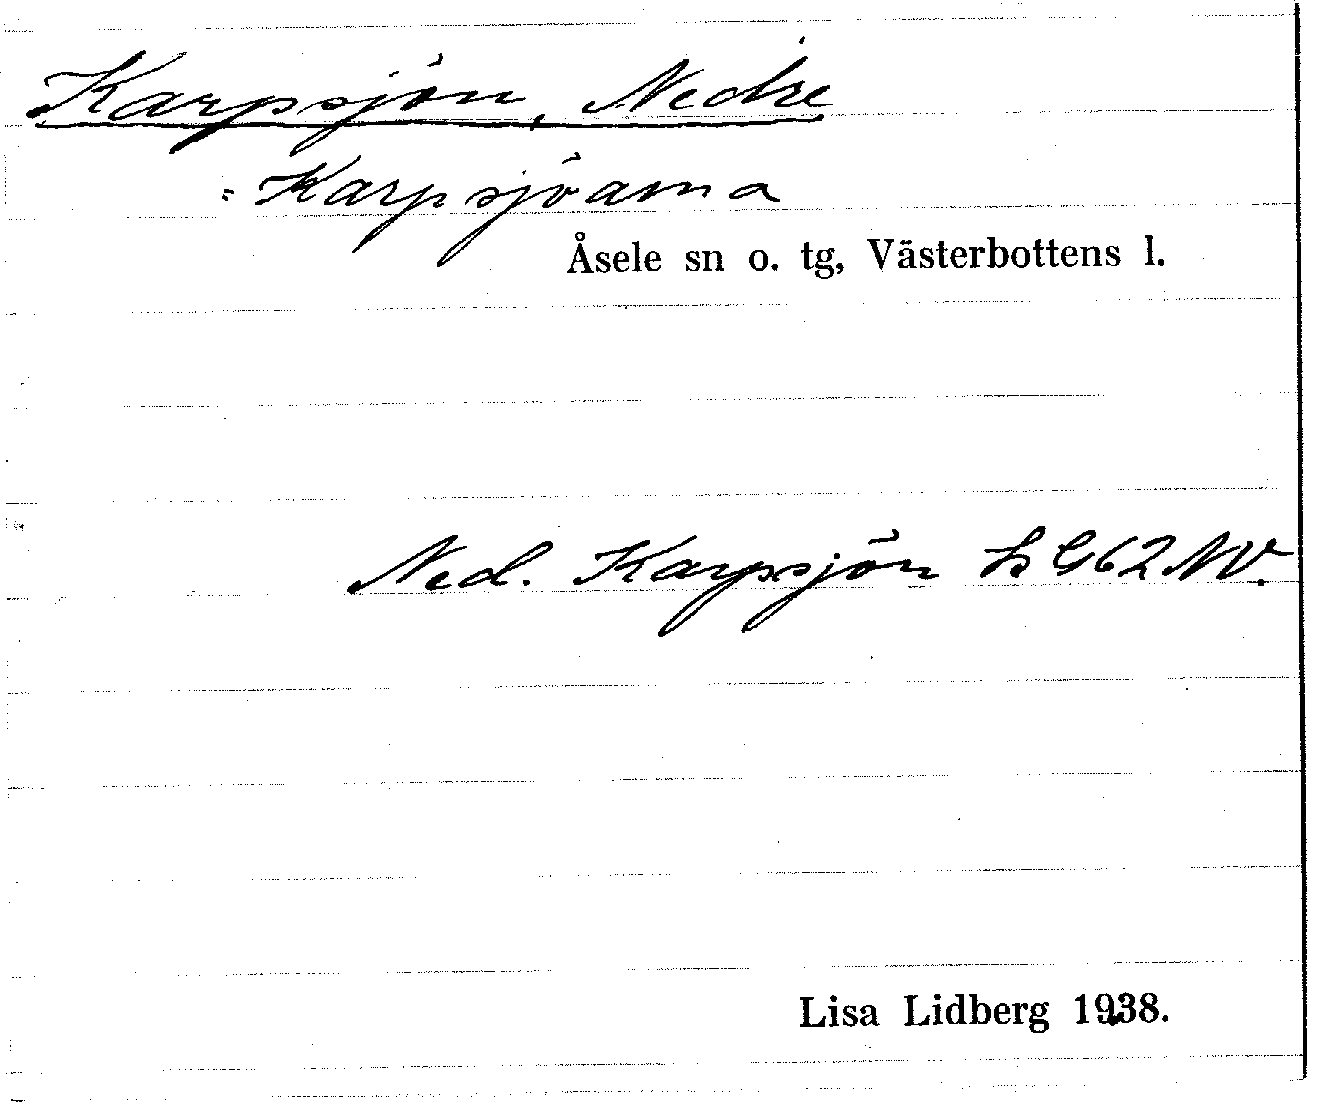 Karpsjön, Nedre
= Karpsjöarna
Åsele sn o. tg, Västerbottens l.
Ned. Karpsjön G62NV.
Lisa Lidberg 1938.